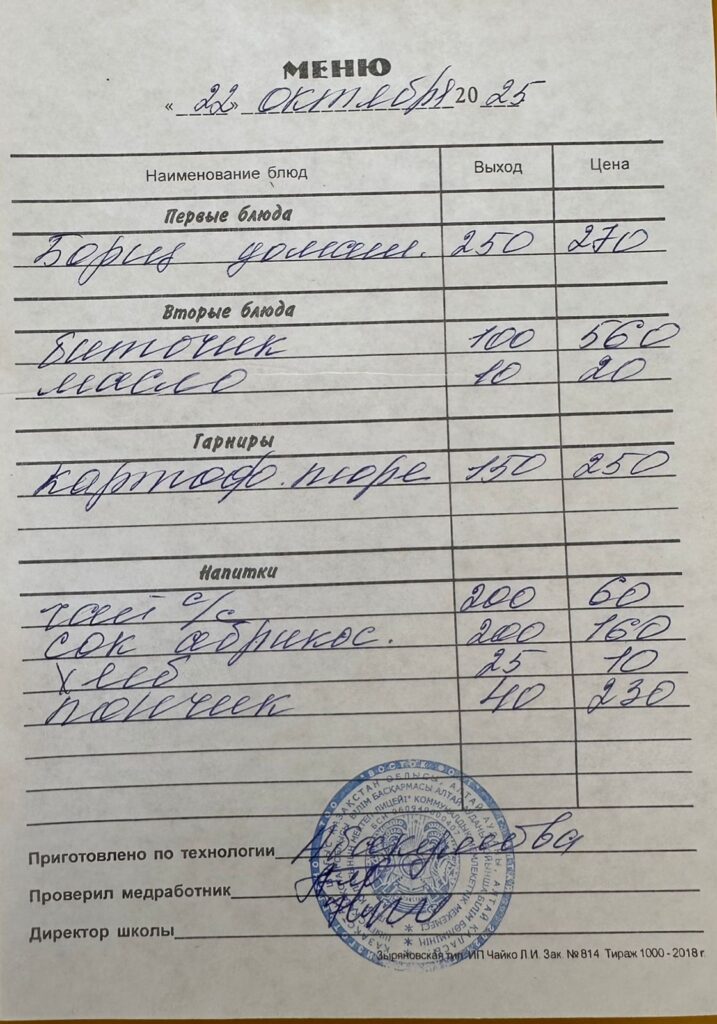 МЕНЮ
« 22 » октября 20 25
Наименование блюд Выход Цена
Первые блюда
Борщ домаш. 250 270
Вторые блюда
биточик 100 560
масло 10 20
Гарниры
картоф. пюре 150 250
Напитки
чай с/с 200 60
сок абрикос. 200 160
хлеб 25 10
пончик 40 230
Приготовлено по технологии
Проверил медработник
Директор школы
Зыряновская тип. ИП Чайко Л.И. Зак. № 814 Тираж 1000 - 2018 г.